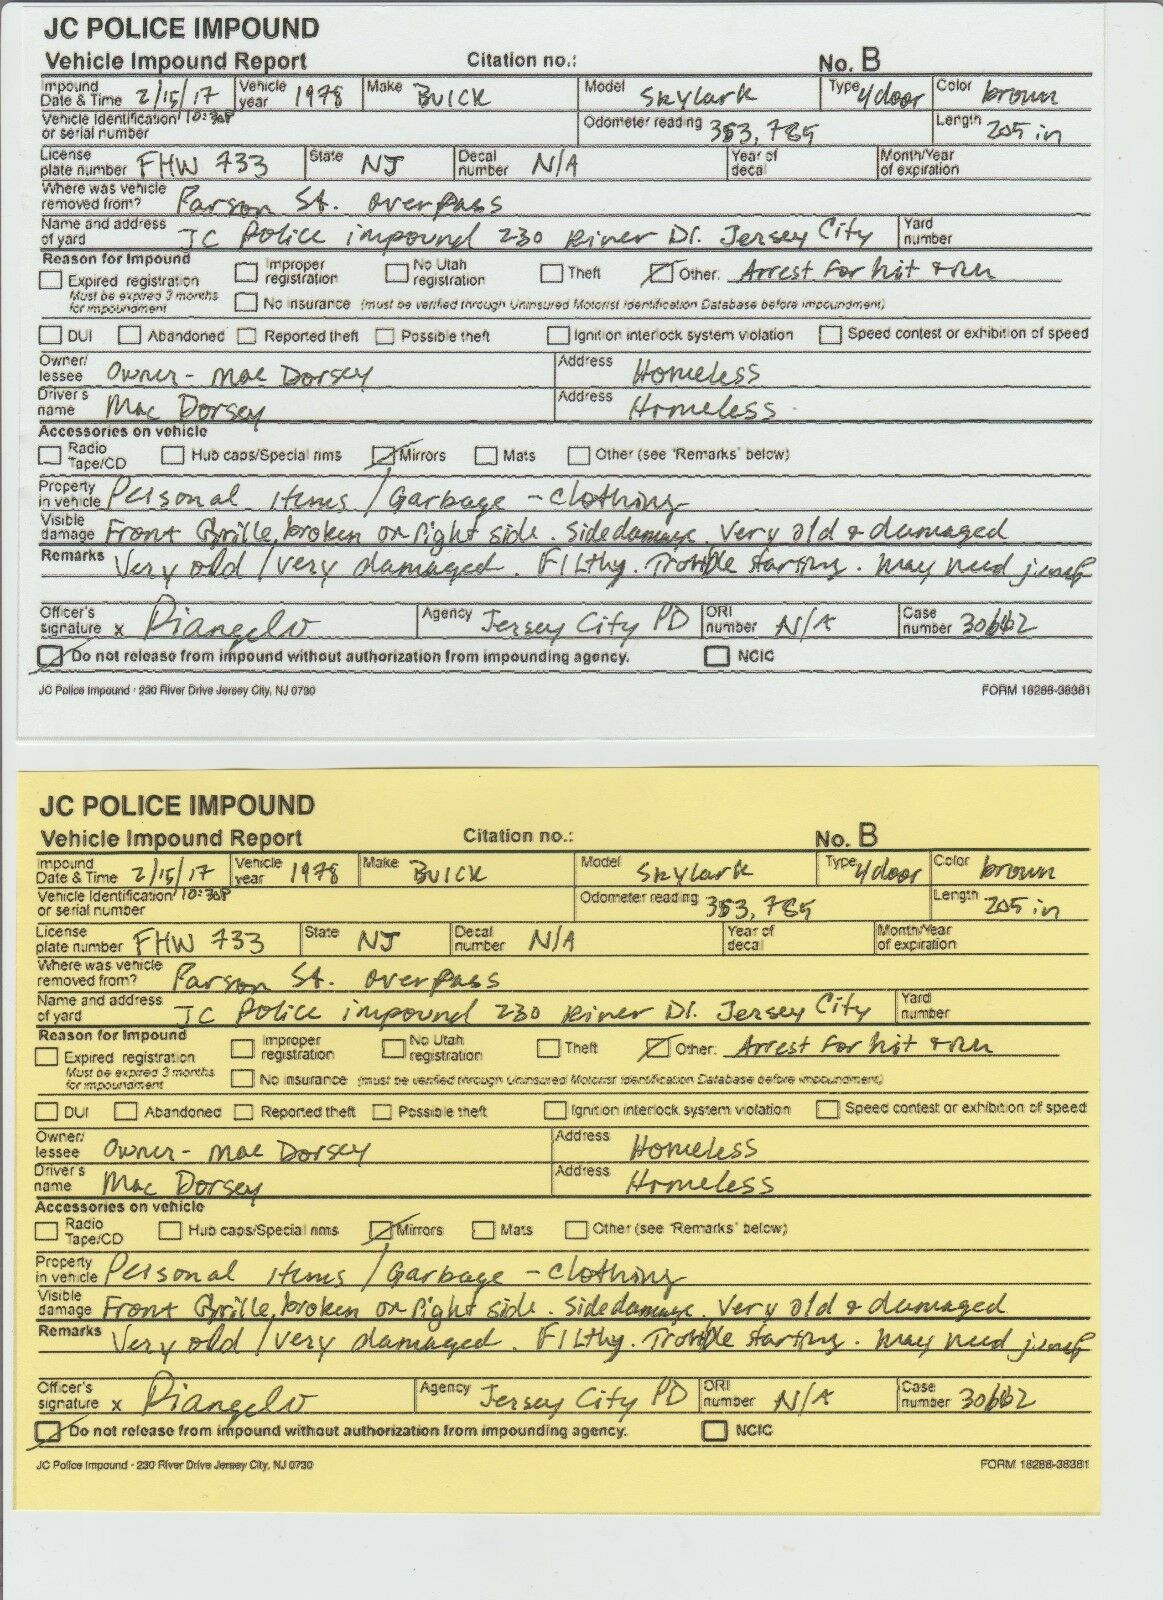 JC POLICE IMPOUND
Vehicle Impound Report Citation no.: No. B
Impound Date & Time 2/15/17 10:30P Vehicle year 1978 Make BUICK Model Skylark Type 4door Color brown
Vehicle Identification or serial number Odometer reading 353,785 Length 205 in
License plate number FHW 733 State NJ Decal number N/A Year of decal Month/Year of expiration
Where was vehicle removed from? Parson St. overpass
Name and address of yard JC Police impound 230 River Dr. Jersey City Yard number
Reason for Impound
Expired registration Improper registration No Utah registration Theft Other: Arrest for hit & run
Must be expired 3 months for impoundment No insurance (must be verified through Uninsured Motorist Identification Database before impoundment)
DUI Abandoned Reported theft Possible theft Ignition interlock system violation Speed contest or exhibition of speed
Owner/lessee Owner - Mac Dorsey Address Homeless
Driver's name Mac Dorsey Address Homeless
Accessories on vehicle
Radio Tape/CD Hub caps/Special rims Mirrors Mats Other (see "Remarks" below)
Property in vehicle Personal items / Garbage - clothing
Visible damage Front Grille, broken on right side. Side damage. Very old & damaged
Remarks Very old / very damaged. Filthy. Trouble starting. May need jump
Officer's signature x Diangelo Agency Jersey City PD ORI number N/A Case number
Do not release from impound without authorization from impounding agency. NCIC
JC Police Impound · 230 River Drive Jersey City, NJ 0730 FORM 18288-38381
JC POLICE IMPOUND
Vehicle Impound Report Citation no.: No. B
Impound Date & Time 2/15/17 10:30P Vehicle year 1978 Make BUICK Model Skylark Type 4door Color brown
Vehicle Identification or serial number Odometer reading 353,785 Length 205 in
License plate number FHW 733 State NJ Decal number N/A Year of decal Month/Year of expiration
Where was vehicle removed from? Parson St. overpass
Name and address of yard JC Police impound 230 River Dr. Jersey City Yard number
Reason for Impound
Expired registration Improper registration No Utah registration Theft Other: Arrest for hit & run
Must be expired 3 months for impoundment No insurance (must be verified through Uninsured Motorist Identification Database before impoundment)
DUI Abandoned Reported theft Possible theft Ignition interlock system violation Speed contest or exhibition of speed
Owner/lessee Owner - Mac Dorsey Address Homeless
Driver's name Mac Dorsey Address Homeless
Accessories on vehicle
Radio Tape/CD Hub caps/Special rims Mirrors Mats Other (see "Remarks" below)
Property in vehicle Personal items / Garbage - clothing
Visible damage Front Grille, broken on right side. Side damage. Very old & damaged
Remarks Very old / very damaged. Filthy. Trouble starting. May need jump
Officer's signature x Diangelo Agency Jersey City PD ORI number N/A Case number
Do not release from impound without authorization from impounding agency. NCIC
JC Police Impound · 230 River Drive Jersey City, NJ 0730 FORM 18288-38381